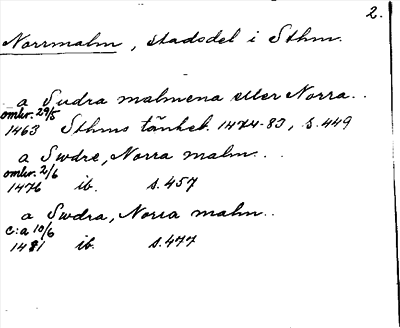 2.
Norrmalm, stadsdel i Sthm.
a Sudra malmena eller Norra..
omkr. 29/5
1463 Sthms tänkeb. 1474-83, s. 449
a Swdre, Norra malm..
omkr. 2/6
1476 ib. s. 457
a Swdra, Norra malm..
c:a 10/6
1481 ib. s. 477